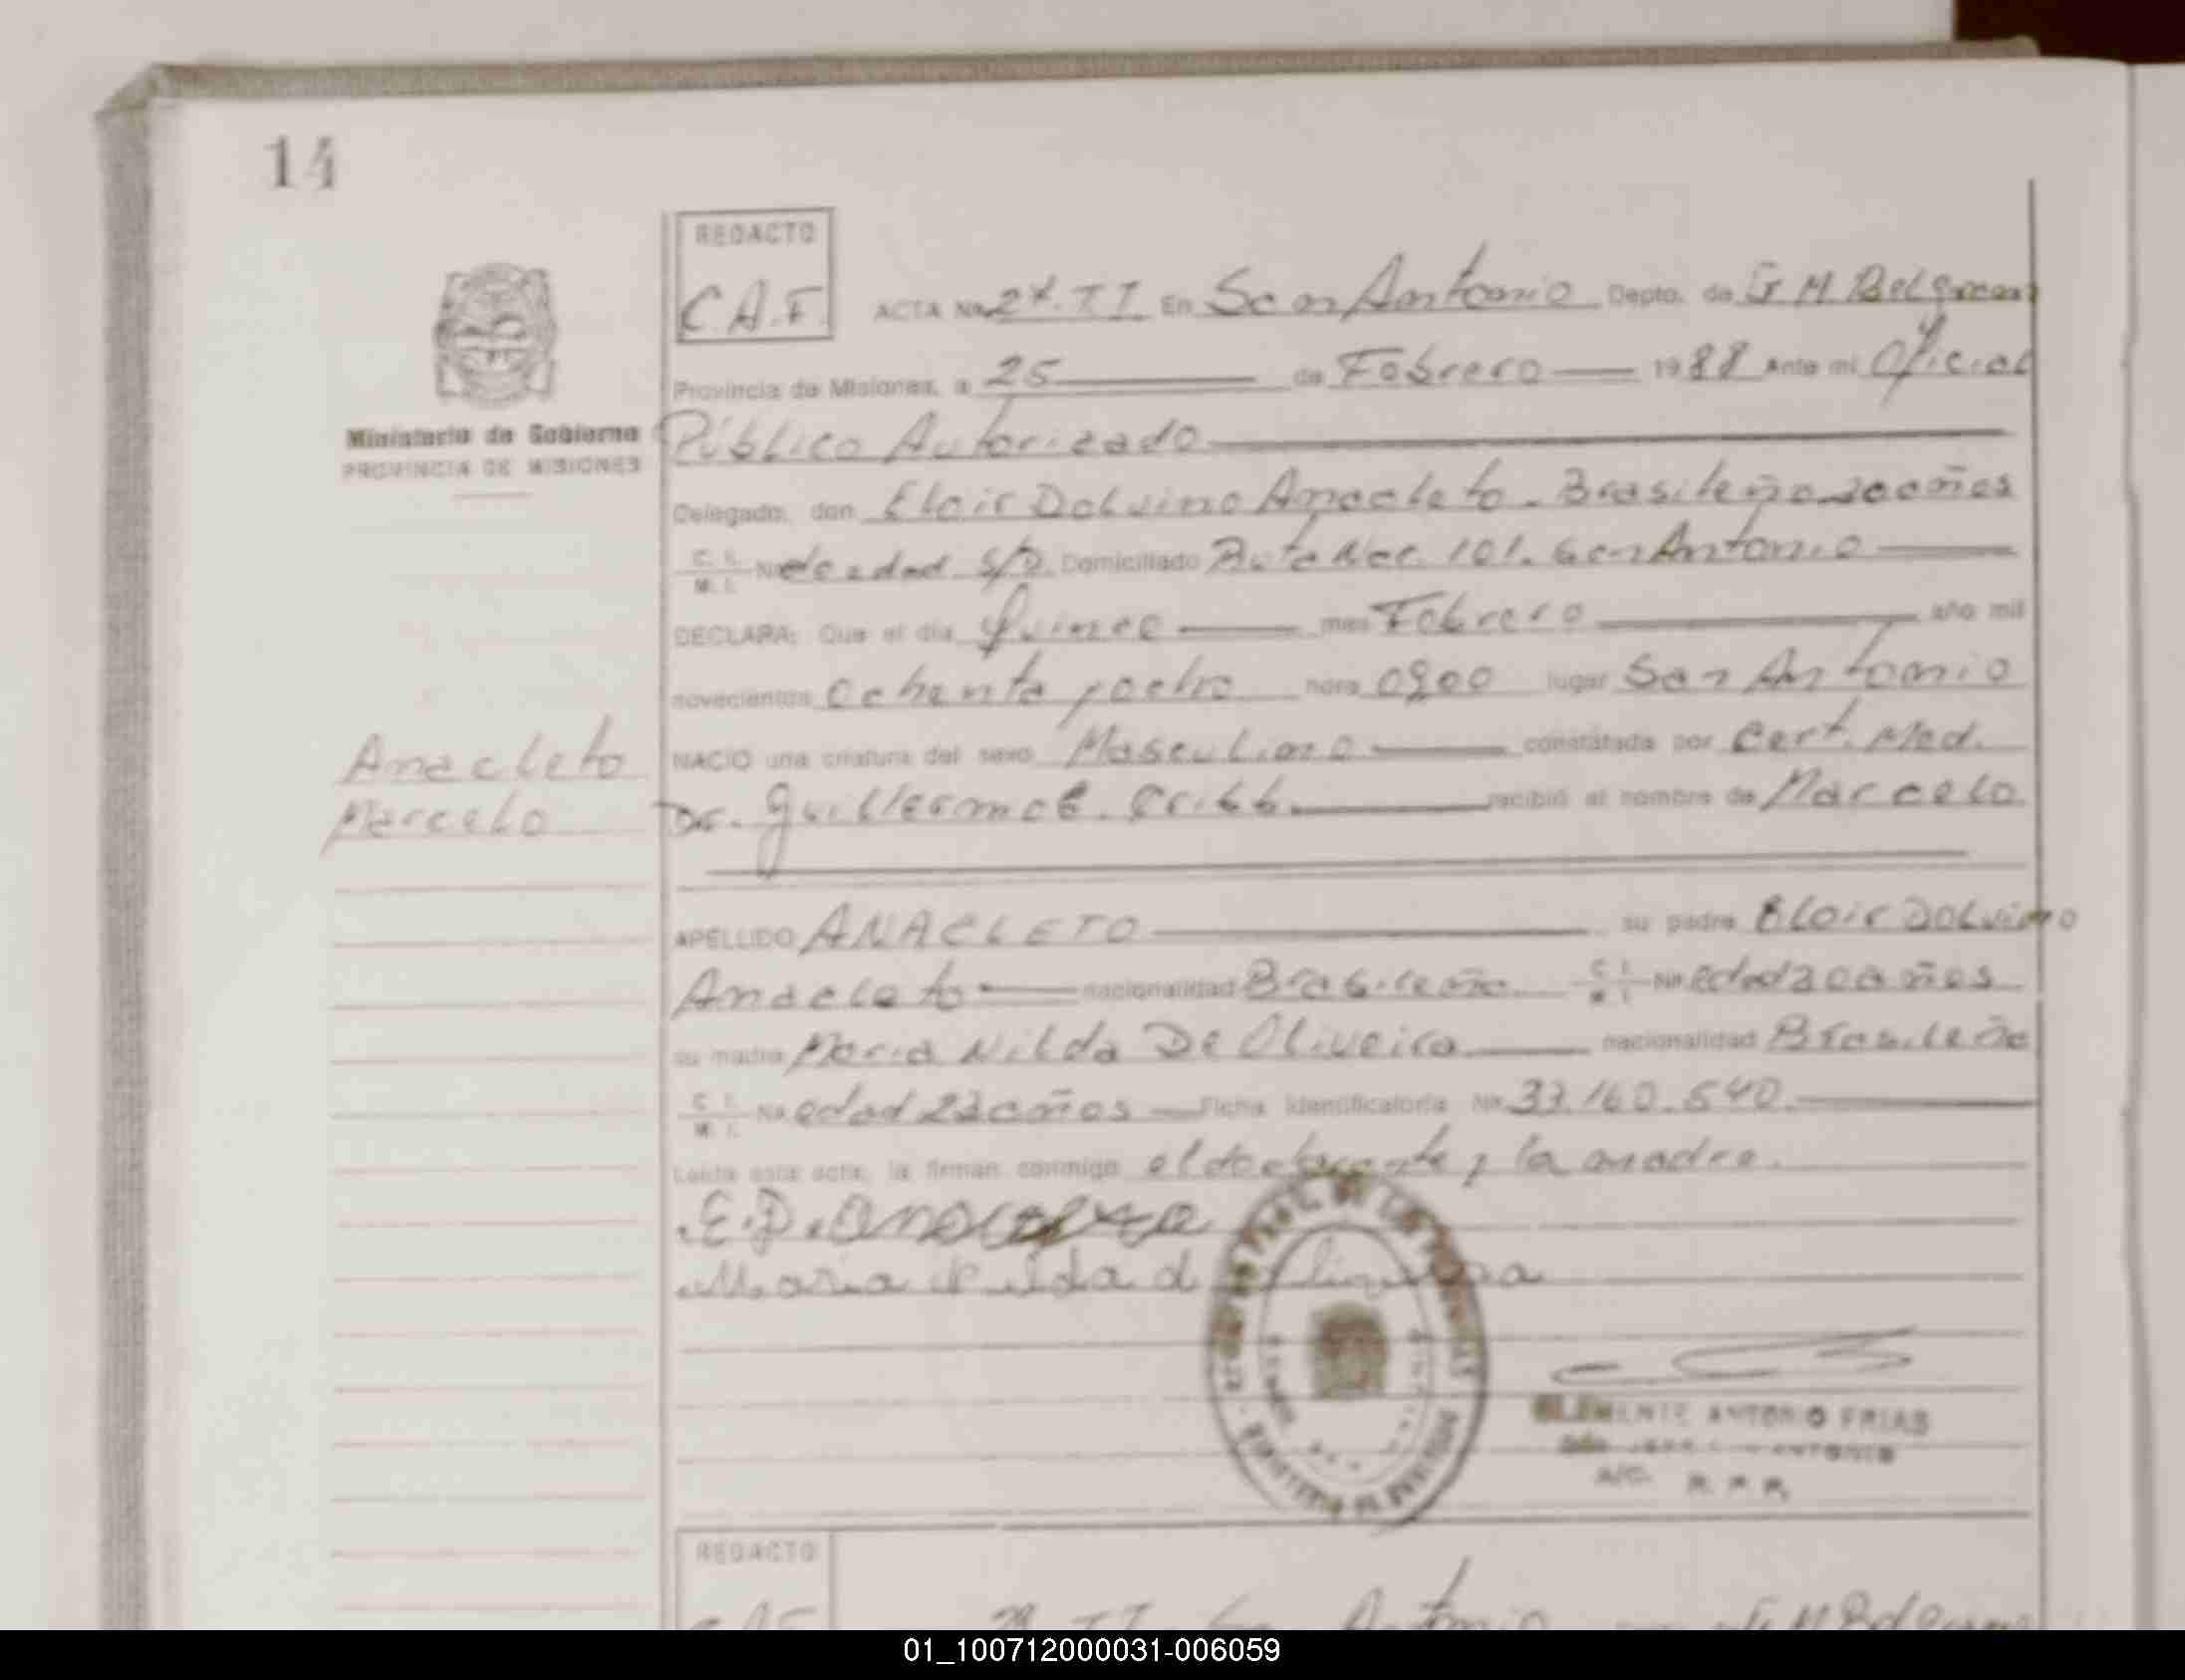 14
REDACTO
C.A.F.
ACTA No 27. T I En San Antonio Depto. de G M Belgrano
Provincia de Misiones, a 25 de Febrero 1988 Ante mi Oficial
Ministerio de Gobierno
PROVINCIA DE MISIONES
Público Autorizado
Delegado, don Eloir Dolvino Anacleto - Brasileño 20 años
C. I. M. I. No de edad S/D. Domiciliado Ruta Nac. 101. San Antonio
DECLARA: Que el día Quince mes Febrero año mil
novecientos ochenta y ocho hora 0900 lugar San Antonio
NACIO una criatura del sexo Masculino constatada por Cert. Med.
Anacleto
Marcelo
Dr. Guillermo Cribb. recibió el nombre de Marcelo
APELLIDO ANACLETO su padre Eloir Dolvino
Anacleto nacionalidad Brasileño C. I. M. I. No edad 20 años
su madre Maria Nilda De Oliveira nacionalidad Brasileña
C. I. M. I. No edad 22 años Ficha Identificatoria No 33.160.540.
Leída esta acta, la firman conmigo el declarante y la madre.
E.D.
Maria Nilda d
CLEMENTE ANTONIO FRIAS
ANTONIO
A/C. R. P. P.
REDACTO
C.A.F.
T I San Antonio G M Belgrano
01_100712000031-006059